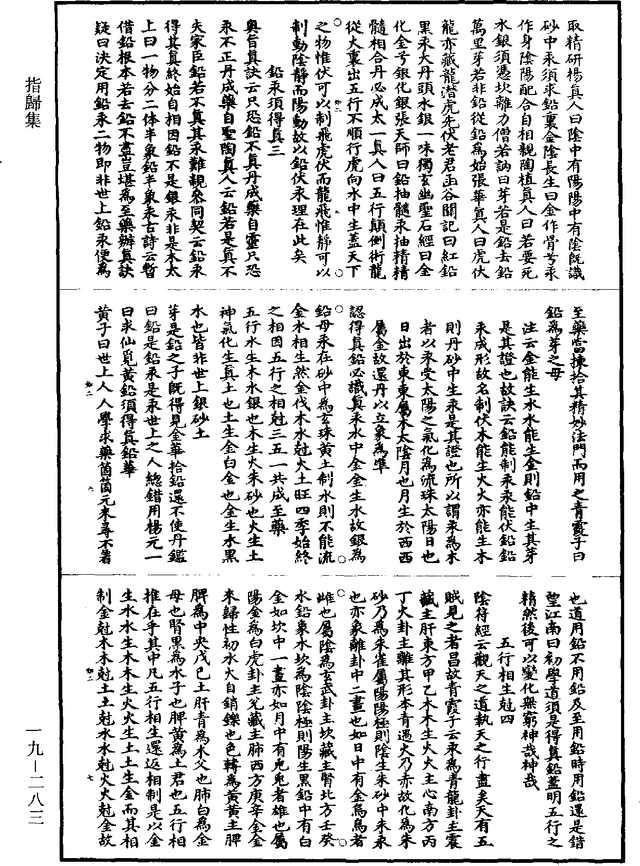 指歸集
取精研楊真人曰陰中有陽陽中有陰旣識
砂中汞須求鉛裏金陰長生曰金作骨兮汞
作身陰陽配合自相親陶植真人曰若要死
水銀須憑坎離力僧若訥曰芽若是鉛去鉛
萬里芽若非鉛從鉛爲始張華真人曰虎伏
龍亦藏龍潛虎先伏老君函谷關記曰紅鉛
黑汞大丹頭水銀一味獨玄幽聖石經曰金
化金兮銀化銀張天師曰鉛抽髓汞抽精精
髓相合丹必成太一真人曰五行顛倒術龍
從火裏出五行不順行虎向水中生蓋天下
之物惟伏可以制飛虎伏而龍飛惟靜可以
制動陰靜而陽動故以鉛伏汞理在此矣
鉛汞須得真三
奥旨真訣云只恐鉛不真丹成藥自靈只恐
汞不正丹成藥自聖陶真人云鉛若是真不
失家臣鉛若不真其汞難親叅同契云鉛汞
得其真終始自相因鉛不是銀汞非是木太
上曰一物分二體半象鉛半象汞古詩云暫
借鉛根本若去鉛不盡豈堪爲至藥辦真訣
疑曰決定用鉛汞二物即非世上鉛汞便爲
至藥當揀拾其精妙法門而用之青霞子曰
鉛爲芽之母
注云金能生水水能生金則鉛中生其芽
是其證也故訣云鉛能制汞汞能伏鉛鉛
汞成形故名制伏木能生火火亦能生木
則丹砂中生汞是其證也所以謂汞爲木
者以汞受太陽之氣化爲硫珠太陽日也
日出於東東屬木太陰月也月生於西西
屬金故還丹以立象爲準
認得真鉛必識真汞水中金金生水故銀爲
鉛母汞在砂中爲玄珠黃土制水則不能流
金水相生然金伐木水尅火土旺四季始終
之相因五行之相尅三五一共成至藥
五行水生木水銀也木生火朱砂也火生土
神氣化生真土也土生金白金也金生水黑
水也皆非世上銀砂土
芽是鉛之子旣得見金華拾鉛還不使丹鑑
曰鉛是鉛汞是汞世上之人總錯用楊元一
曰求仙覓黃鉛須得真鉛華
黃子曰世上人人學求藥箇箇元來尋不着
也道用鉛不用鉛及至用鉛時用鉛還是錯
望江南曰初學道須是得真鉛蓋明五行之
精然後可以變化無窮神哉神哉
五行相生尅四
陰符經云觀天之道執天之行盡矣天有五
賊見之者昌故青霞子云汞爲青龍卦主震
藏主肝東方甲乙木木生火火主心南方丙
丁火卦主離其形本青遇火乃赤故化爲朱
砂乃爲朱雀屬陽陽極則陰生朱砂中汞汞
也亦象離卦中二畫也如日中有金烏烏者
雌也屬陰爲玄武卦主坎藏主腎北方壬癸
水鉛象水坎爲陰陰極則陽生黑鉛中有白
金如坎中一畫亦如月中有兎兎者雄也屬
陽金爲白虎卦主兌藏主肺西方庚辛金金
來歸性初水火自銷鑠也色轉爲黃黃主脾
脾爲中央戊己土肝青爲木父也肺白爲金
母也腎黑爲水子也脾黃爲土君也五行相
推在乎其中凡五行相生還返相制是以金
生水水生木木生火火生土土生金而其相
制金尅木木尅土土尅水水尅火火尅金故
一九—二八三